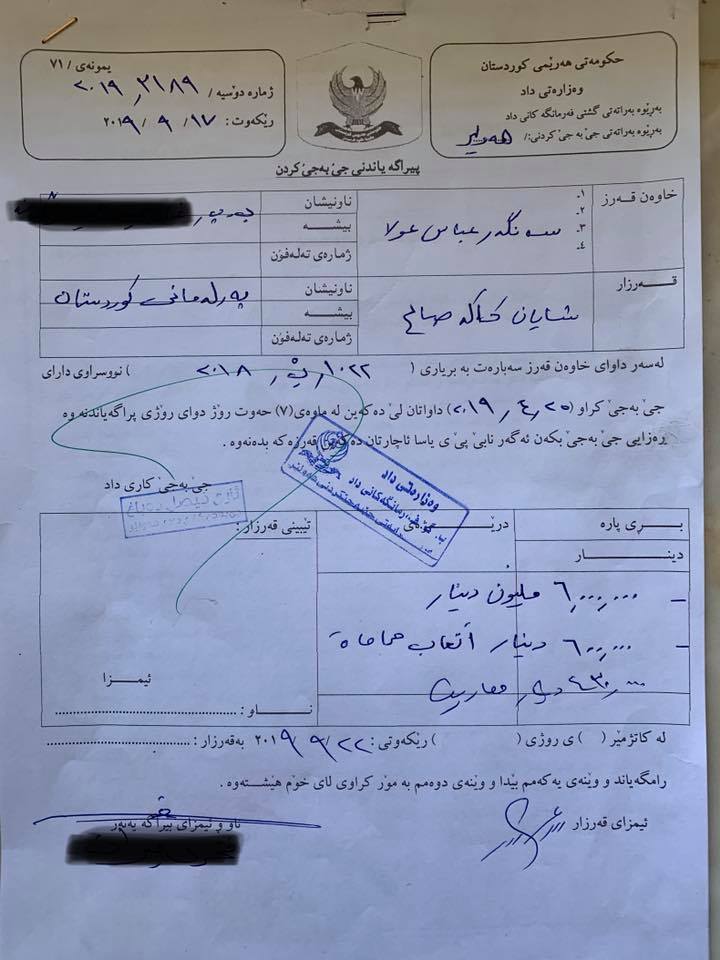 حکومەتی هەرێمی کوردستان
وەزارەتی داد
بەڕێوە بەرائەتی گشتی فەرمانگە کانی داد
بەڕێوە بەرائەتی جێ بە جێ کردنی/ هەولێر
یمونەی / ٧١
ژمارە دۆسیە / ٢١٨٩ / ٢٠١٩
رێکەوت: ١٧ / ٩ / ٢٠١٩
پیراگە یاندنی جێ بەجێ کردن
خاوەن قەرز
١-
٢-
٣- سەنگەر عباس عولا
٤-
ناونیشان
پیشە
ژمارەی تەلەفۆن
قەرزار
شایان کاکە صالح
ناونیشان
پیشە
ژمارەی تەلەفۆن
پەرلەمانی کوردستان
لەسەر داوای خاوەن قەرز سەبارەت بە بریاری ( ١٠٢٢ / ٢٠١٨ ) نووسراوی دارای
جێ بەجێ کراو (٢٥ / ٤ / ٢٠١٩) داواتان لێ دەکەین لە ماوەی (٧) حەوت رۆژ دوای رۆژی پراگەیاندنەوە
پەزایی جێ بەجێ بکەن ئەگەر نابێ پێ ی یاسا ناچارتان دەکەین قەرزەکە بدەنەوە .
جێ بەجێ کاری داد
وەزارەتی داد
بڕی پارە
دینار
درێژەی
تێبینی قەرزار :
- ٦,٠٠٠,٠٠٠ ملیون دینار
- ٦٠٠,٠٠٠ دینار أتعاب محاماة
٤٣٠,٠٠٠ دینار مصاریف
ئیمزا
ناو :
لە کاتژمێر ( ) ی رۆژی ( ) رێکەوتی : ٢٢ / ٩ / ٢٠١٩ بەقەرزار :
رامگەیاند و وێنەی یەکەمم پێدا و وێنەی دووەمم بە مۆر کراوی لای خۆم هێشتەوە .
ئیمزای قەرزار
ناو و ئیمزای پیراگە یەبەر